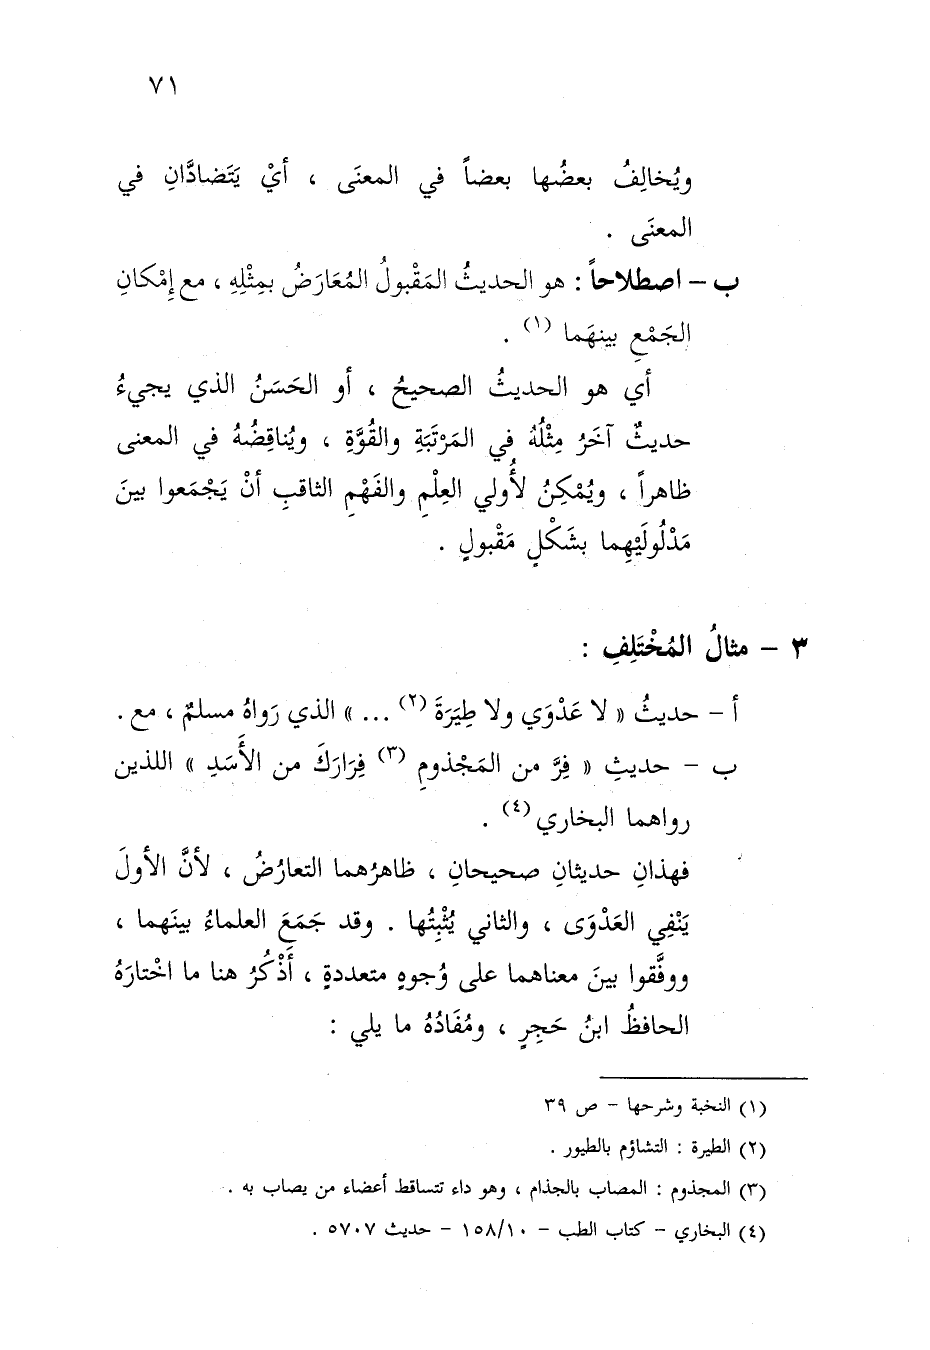 ٧١
ويُخالِفُ بعضُها بعضاً في المعنَى ، أيْ يَتَضادَّانِ في
المعنَى .
ب – اصطلاحاً : هو الحديثُ المَقْبولُ المُعَارَضُ بمِثْلِهِ ، مع إمْكانِ
الجَمْعِ بينهَما (١) .
أي هو الحديثُ الصحيحُ ، أو الحَسَنُ الذي يجيءُ
حديثٌ آخَرُ مِثْلُهُ في المَرْتَبَةِ والقُوَّةِ ، ويُناقِضُهُ في المعنى
ظاهراً ، ويُمْكِنُ لأُولي العِلْمِ والفَهْمِ الثاقبِ أنْ يَجْمَعوا بينَ
مَدْلُولَيْهِما بشَكْلٍ مَقْبولٍ .
٣ – مثالُ المُخْتَلِفِ :
أ – حديثُ « لا عَدْوَي ولا طِيَرَةَ (٢) ... » الذي رَواهُ مسلمٌ ، مع .
ب – حديثِ « فِرَّ من المَجْذومِ (٣) فِرَارَكَ من الأَسَدِ » اللذين
رواهما البخاري (٤) .
فهذانِ حديثانِ صحيحانِ ، ظاهرُهما التعارُضُ ، لأنَّ الأولَ
يَنْفِي العَدْوَى ، والثاني يُثْبِتُها . وقد جَمَعَ العلماءُ بينَهما ،
ووفَّقوا بينَ معناهما على وُجوهٍ متعددةٍ ، أَذْكُرُ هنا ما اخْتارَهُ
الحافظُ ابنُ حَجِرٍ ، ومُفَادُهُ ما يلي :
(١) النخبة وشرحها – ص ٣٩
(٢) الطيرة : التشاؤم بالطيور .
(٣) المجذوم : المصاب بالجذام ، وهو داء تتساقط أعضاء من يصاب به .
(٤) البخاري – كتاب الطب – ١٥٨/١٠ – حديث ٥٧٠٧ .